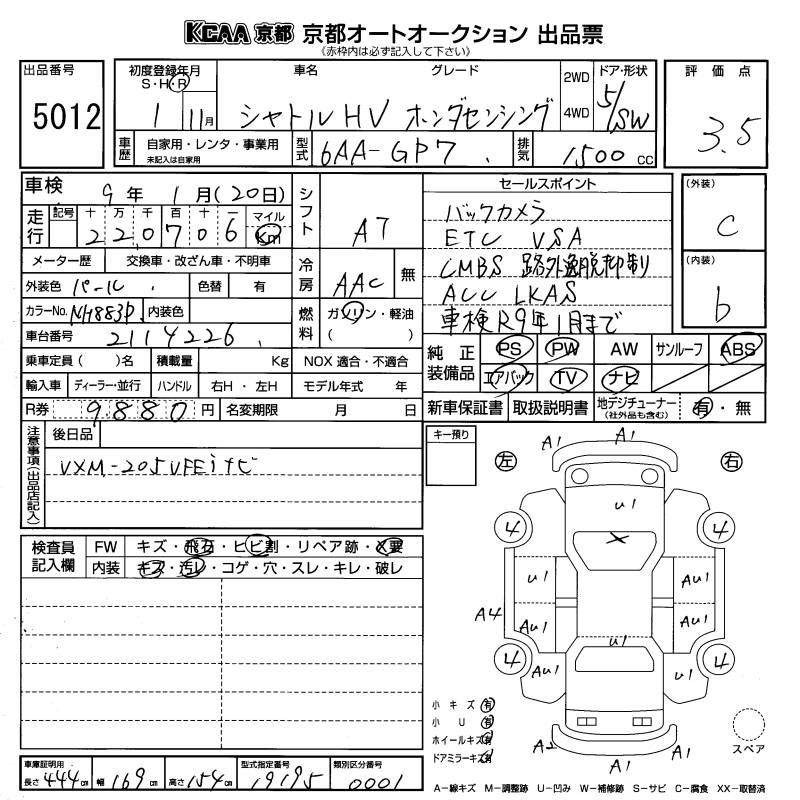 KCAA 京都 京都オートオークション 出品票
(赤枠内は必ず記入して下さい)
出品番号
5012
初度登録年月
S・H・R
1 11月
車名 グレード
シャトルHV ホンダセンシング
2WD
4WD
ドア・形状
5/SW
評価点
3.5
車歴
自家用・レンタ・事業用
未記入は自家用
型式
6AA-GP7
排気
1,500 CC
車検 9年 1月(20日)
走行
記号 十 万 千 百 十 一 マイル
2 2 0, 7 0 6 Km
メーター歴 交換車・改ざん車・不明車
外装色 パール 色替 有
カラーNo. NH883P 内装色
車台番号 2114226
乗車定員( )名 積載量 Kg
輸入車 ディーラー・並行 ハンドル 右H・左H
R券 9880円 名変期限 月 日
シフト
AT
冷房
AAC 無
燃料
ガソリン・軽油
( )
NOX 適合・不適合
モデル年式 年
セールスポイント
バックカメラ
ETC VSA
CMBS 路外逸脱抑制
ACC LKAS
車検R9年1月まで
(外装)
C
(内装)
b
純正装備品
PS PW AW サンルーフ ABS
エアバック TV ナビ
新車保証書 取扱説明書 地デジチューナー
(社外品も含む)
有・無
注意事項(出品店記入)
後日品
VXM-205VFEiナビ
キー預り
左 右
A1 A1
U1
4 4
X
U1 AU1
A4 AU1 AU1
U1
4 4
AU1 U1
A2 A1 A1
検査員記入欄
FW キズ・飛石・ヒビ割・リペア跡・X要
内装 キズ・汚レ・コゲ・穴・スレ・キレ・破レ
小キズ 有
小U 有
ホイールキズ 有
ドアミラーキズ 有
スペア
車庫証明用
長さ 444cm 幅 169cm 高さ 154cm
型式指定番号
19195
類別区分番号
0001
A-線キズ M-調整跡 U-凹み W-補修跡 S-サビ C-腐食 XX-取替済